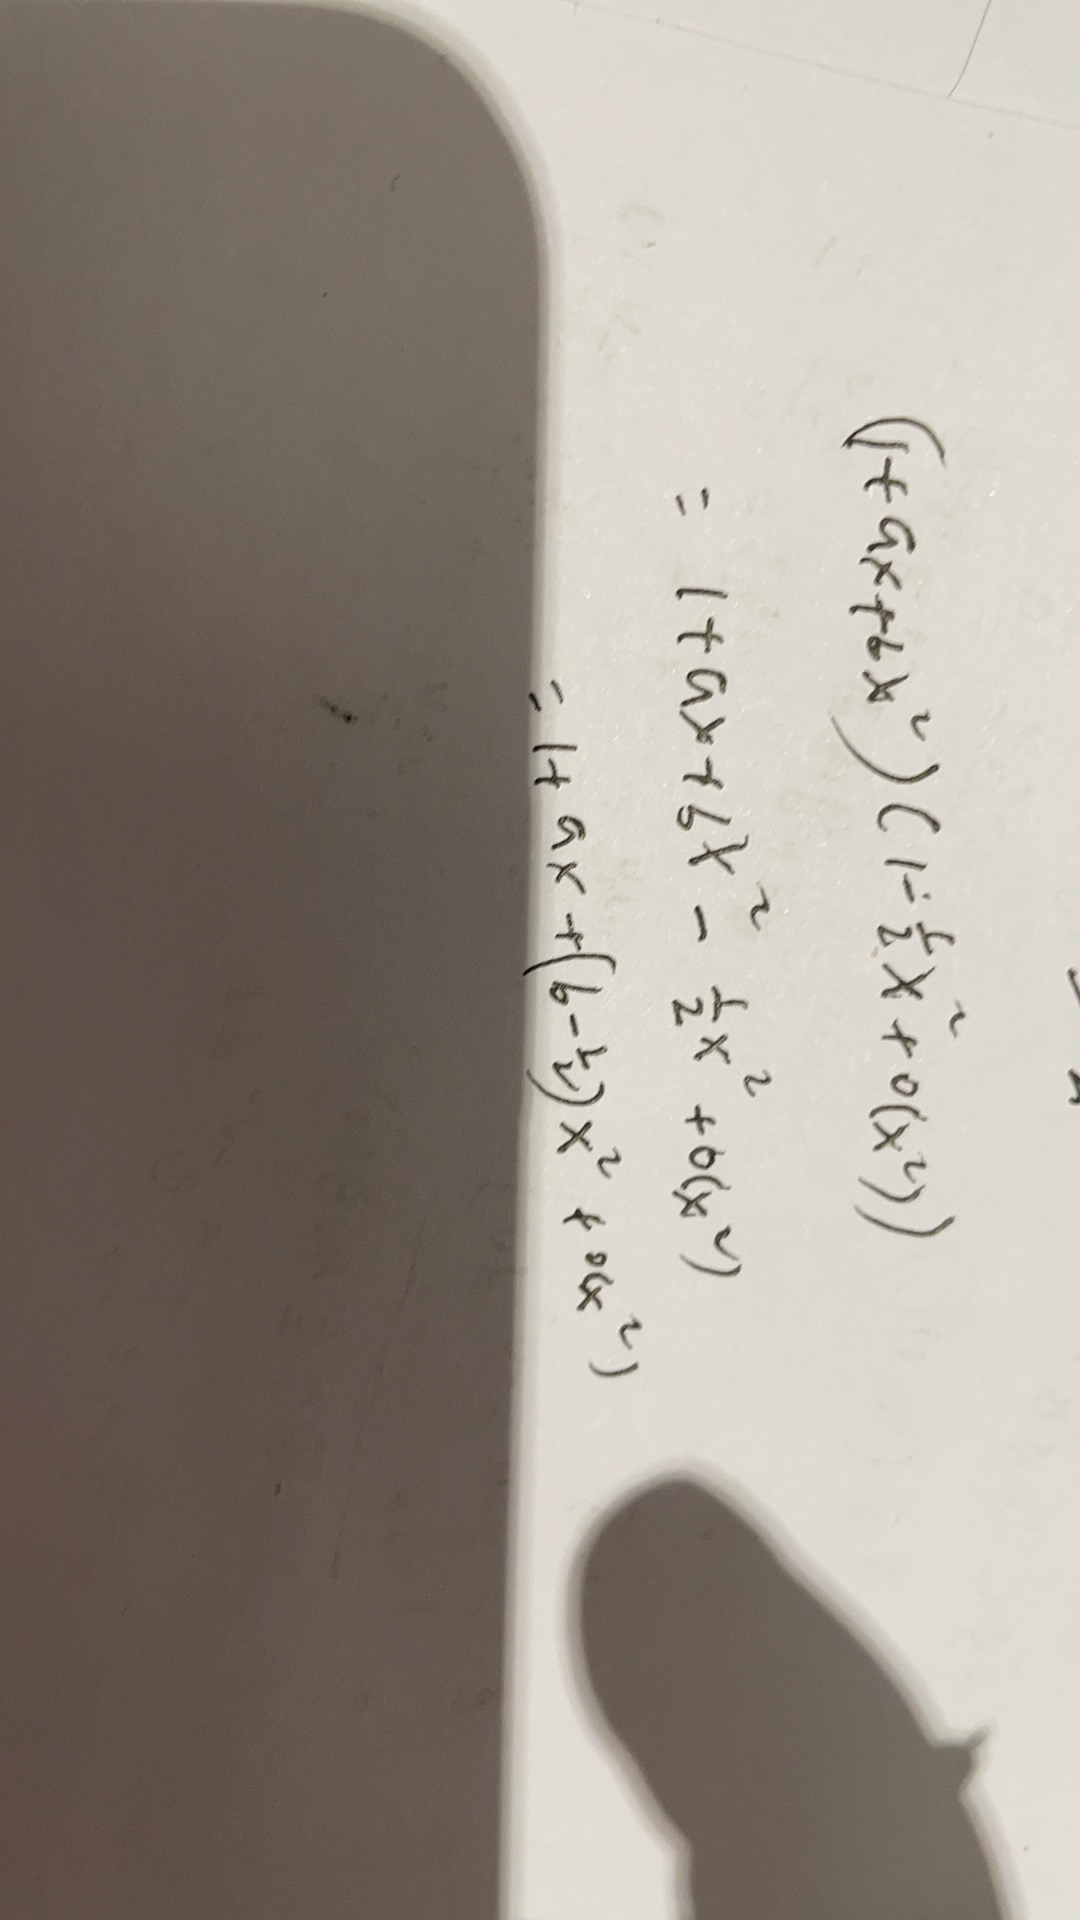 (1+ax+bx²)(1-½x²+o(x²))
= 1+ax+bx²-½x²+o(x²)
= 1+ax+(b-½)x²+o(x²)